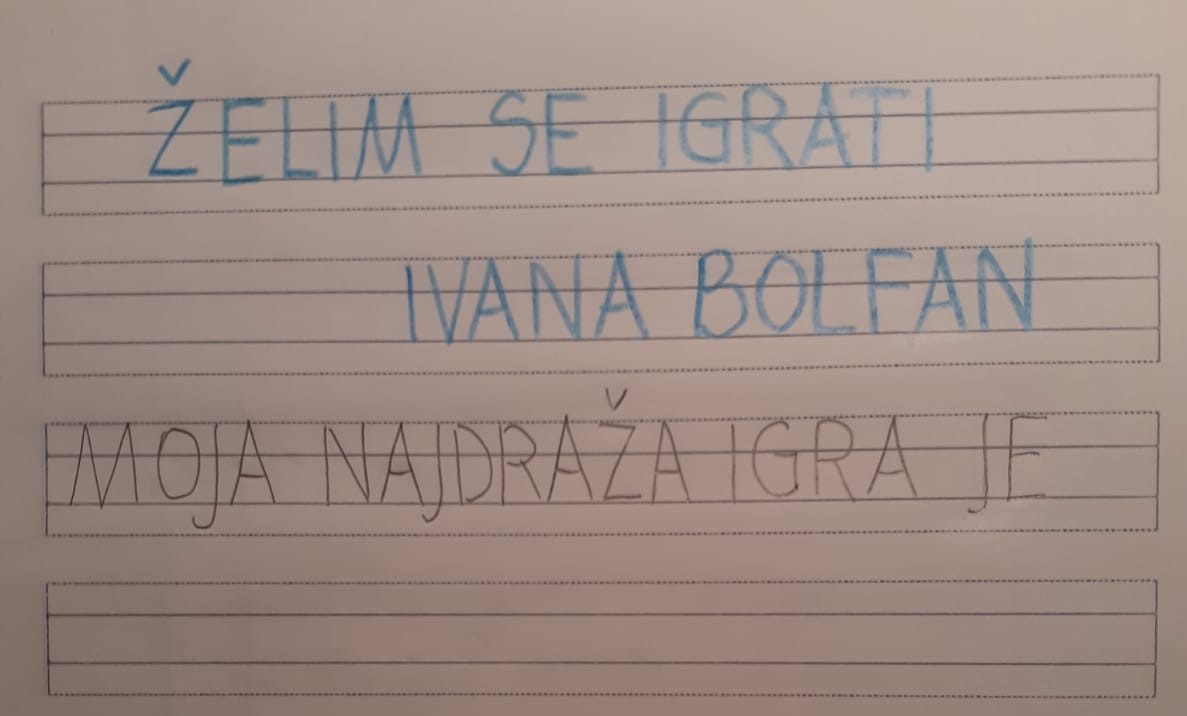 ŽELIM SE IGRATI
IVANA BOLFAN
MOJA NAJDRAŽA IGRA JE